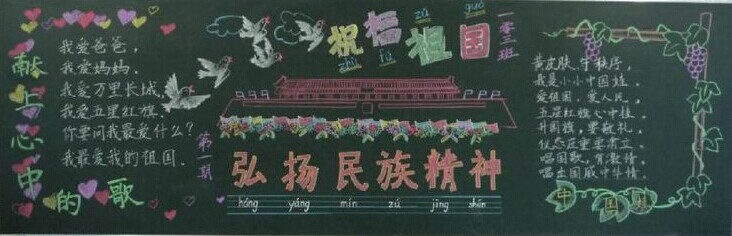 献上心中的歌
我爱爸爸，
我爱妈妈，
我爱万里长城，
我爱五星红旗，
你要问我最爱什么？
我最爱我的祖国。
第一期
祝福祖国
zhù fú zǔ guó
一零三班
弘扬民族精神
hóng yáng mín zú jīng shén
黄皮肤，守秩序，
我是小小中国娃
爱祖国，爱人民，
五星红旗心中挂
升国旗，要敬礼，
仪态庄重要肃立
唱国歌，有激情
唱出国威中华情。
中国娃